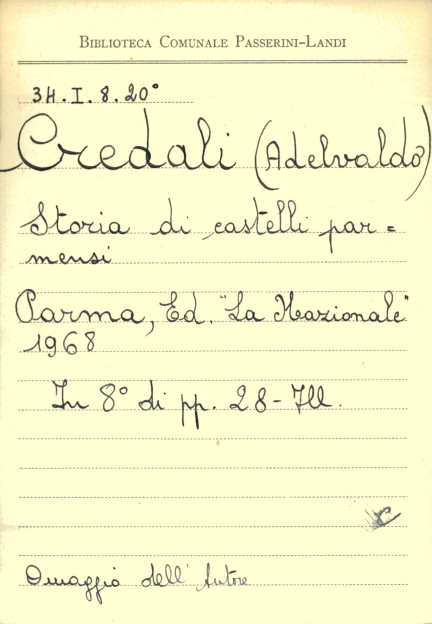 BIBLIOTECA COMUNALE PASSERINI-LANDI
34.I.8.20°
Credali (Adelvaldo)
Storia di castelli par=
mensi
Parma, Ed. "La Nazionale"
1968
In 8° di pp. 28-Ill.
Omaggio dell'Autore